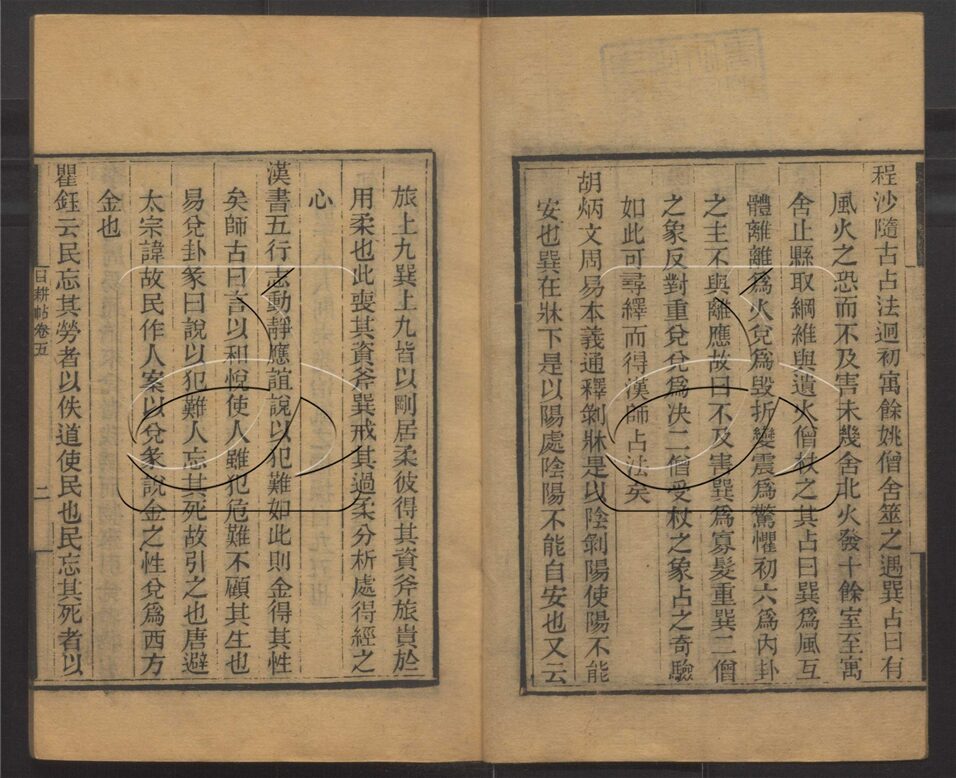 程沙隨古占法迥初寓餘姚僧舍筮之遇巽占曰有
風火之恐而不及害未幾舍北火發十餘室至寓
舍止縣取綱維與遺火僧杖之其占曰巽爲風互
體離離爲火兌爲毀折變震爲驚懼初六爲內卦
之主不與離應故曰不及害巽爲寡髮重巽二僧
之象反對重兌兌爲決二僧受杖之象占之奇驗
如此可尋繹而得漢師占法矣
胡炳文周易本義通釋剝牀是以陰剝陽使陽不能
安也巽在牀下是以陽處陰陽不能自安也又云
旅上九巽上九皆以剛居柔彼得其資斧旅貴於
用柔也此喪其資斧巽戒其過柔分析處得經之
心
漢書五行志動靜應誼說以犯難如此則金得其性
矣師古曰言以和悅使人雖犯危難不顧其生也
易兌卦彖曰說以犯難人忘其死故引之也唐避
太宗諱故民作人案以兌彖說金之性兌爲西方
金也
瞿鈺云民忘其勞者以佚道使民也民忘其死者以
目耕帖卷五
二